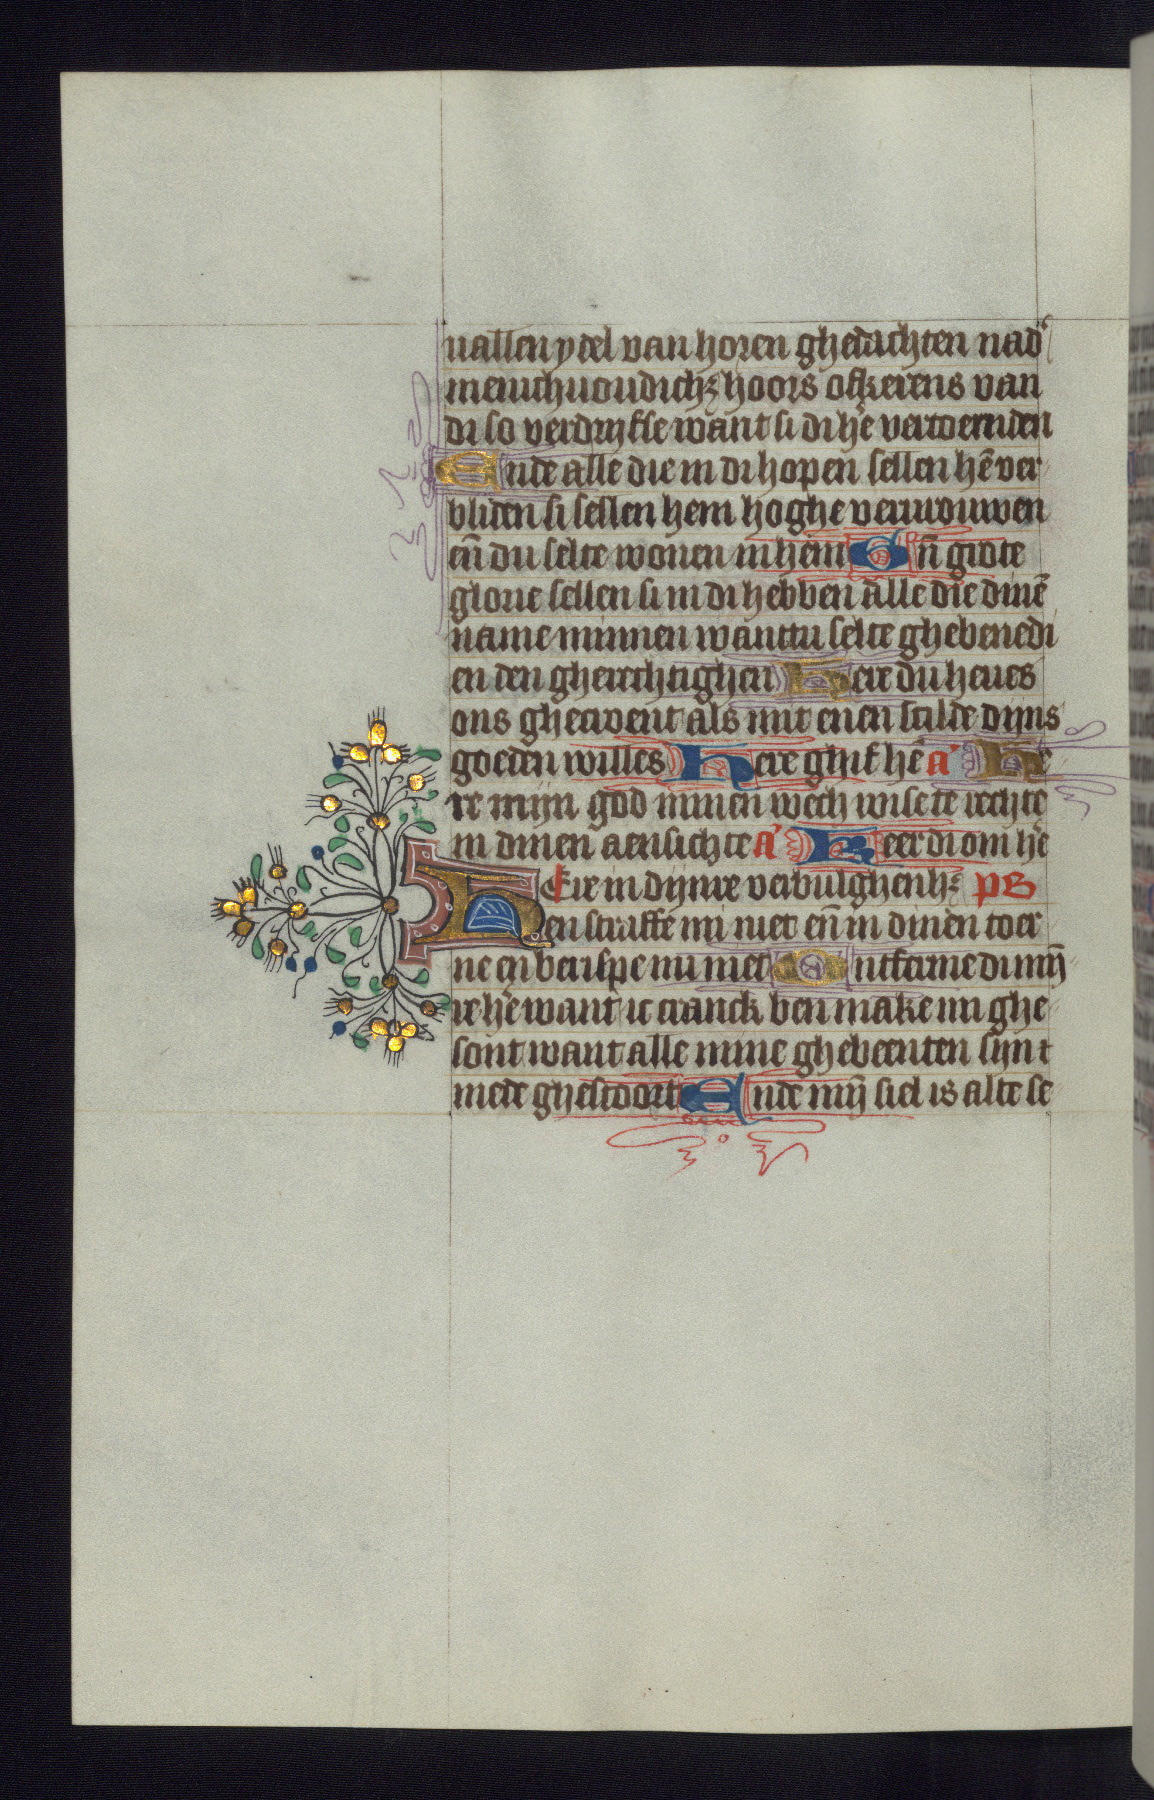 uallen ydel van horen ghedachten nad'
menichuoudichz hoors ofkerens van
di so verdrijfse want si di he vertoernden
Ende alle die in di hopen sellen hē ver
bliden si sellen hem hoghe vervrouwen
eñ du selte wonen in hem Eñ grote
glorie sellen si in di hebben alle die dinē
name minnen wanttu selte ghebenedi
en den gherechtighen Here du heues
ons ghecroent als mit enen scilde dijns
goeden willes Here ghif hē a' He
re mijn god minen wech wise te rechte
in dinen aensichte a' Keer di om he
HEre in dijnre verbulghenhz ps
en straffe mi niet eñ in dinen toer
ne eñ berispe mi niet Ontferme di mijn
re he want ic cranck ben make mi ghe
sont want alle mine ghebeenten sijnt
mede ghestoort Ende mijn siel is alte se